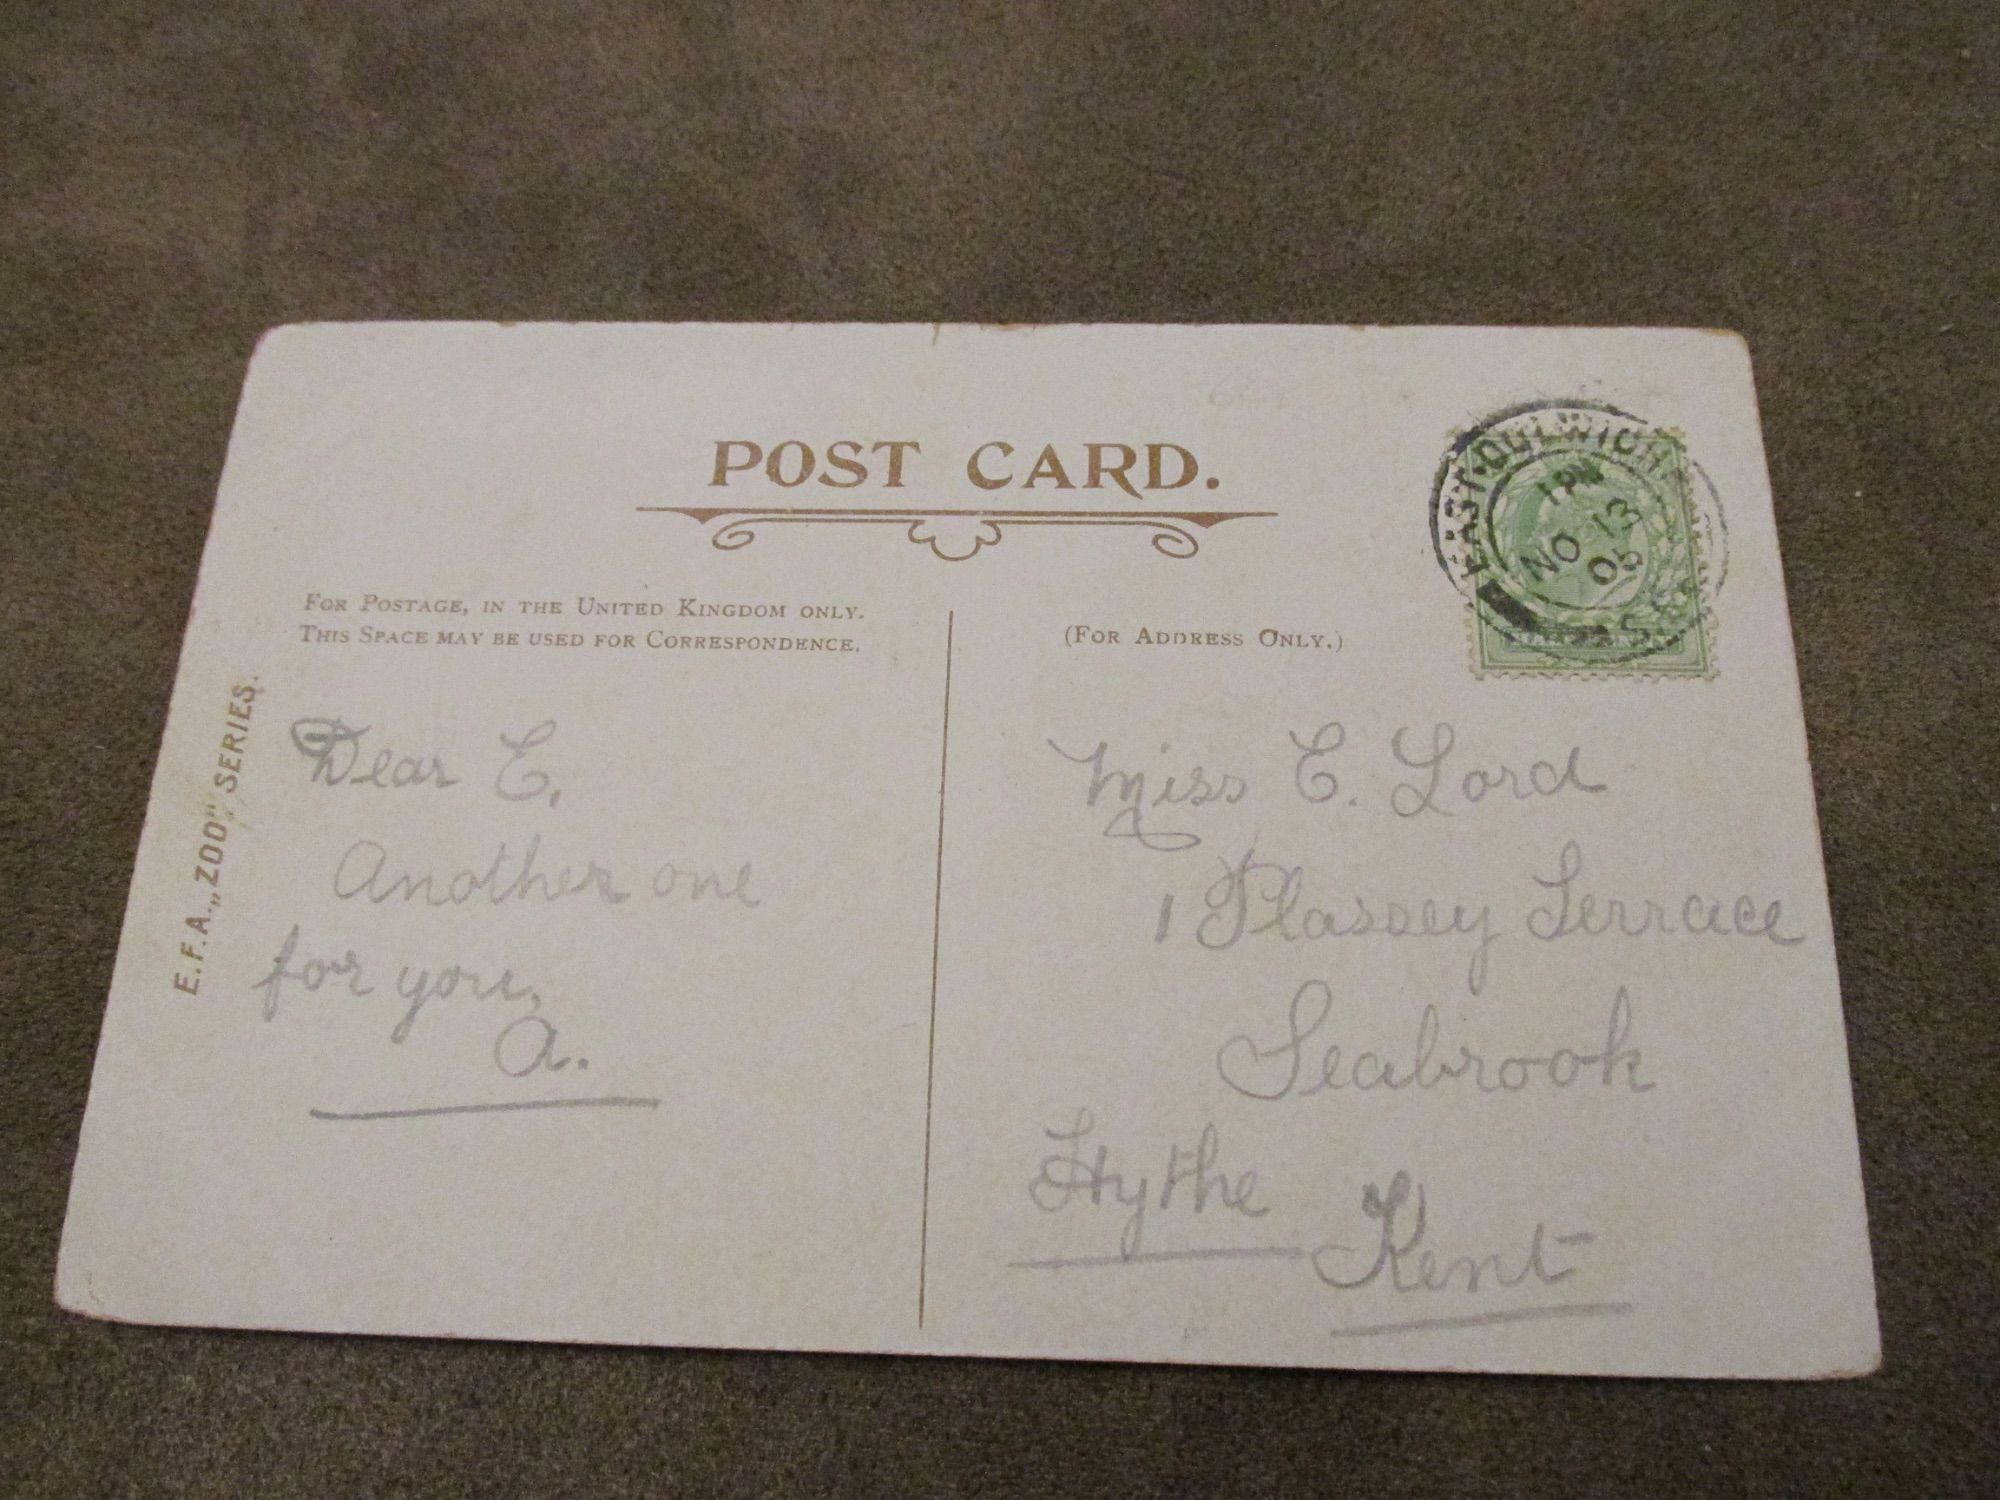 POST CARD.
FOR POSTAGE, IN THE UNITED KINGDOM ONLY.
THIS SPACE MAY BE USED FOR CORRESPONDENCE.
(FOR ADDRESS ONLY.)
E.F.A. „ZOO" SERIES.
EAST·DULWICH
1 PM
NO 13
05
S.E.
Dear E,
Another one
for you,
A.
Miss E. Lord
1 Plassey Terrace
Seabrook
Hythe
Kent